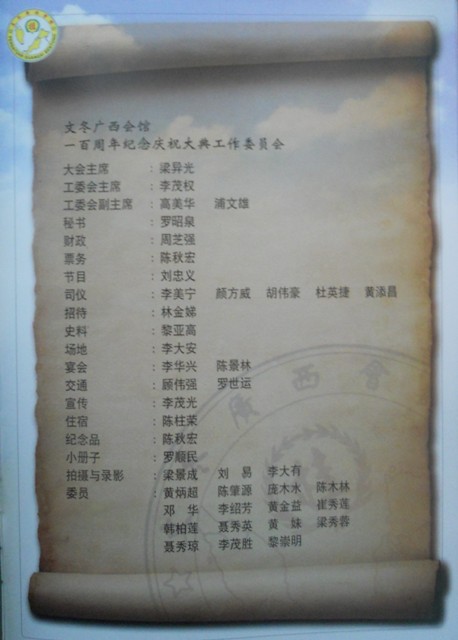 文冬广西会馆
一百周年纪念庆祝大典工作委员会
大会主席 : 梁异光
工委会主席 : 李茂权
工委会副主席 : 高美华 浦文雄
秘书 : 罗昭泉
财政 : 周芝强
票务 : 陈秋宏
节目 : 刘忠义
司仪 : 李美宁 颜方威 胡伟豪 杜英捷 黄添昌
招待 : 林金娣
史料 : 黎亚高
场地 : 李大安
宴会 : 李华兴 陈景林
交通 : 顾伟强 罗世运
宣传 : 李茂光
住宿 : 陈柱荣
纪念品 : 陈秋宏
小册子 : 罗顺民
拍摄与录影 : 梁景成 刘 易 李大有
委员 : 黄炳超 陈肇源 庞木水 陈木林
邓 华 李绍芳 黄金益 崔秀莲
韩柏莲 聂秀英 黄 妹 梁秀蓉
聂秀琼 李茂胜 黎崇明
西會